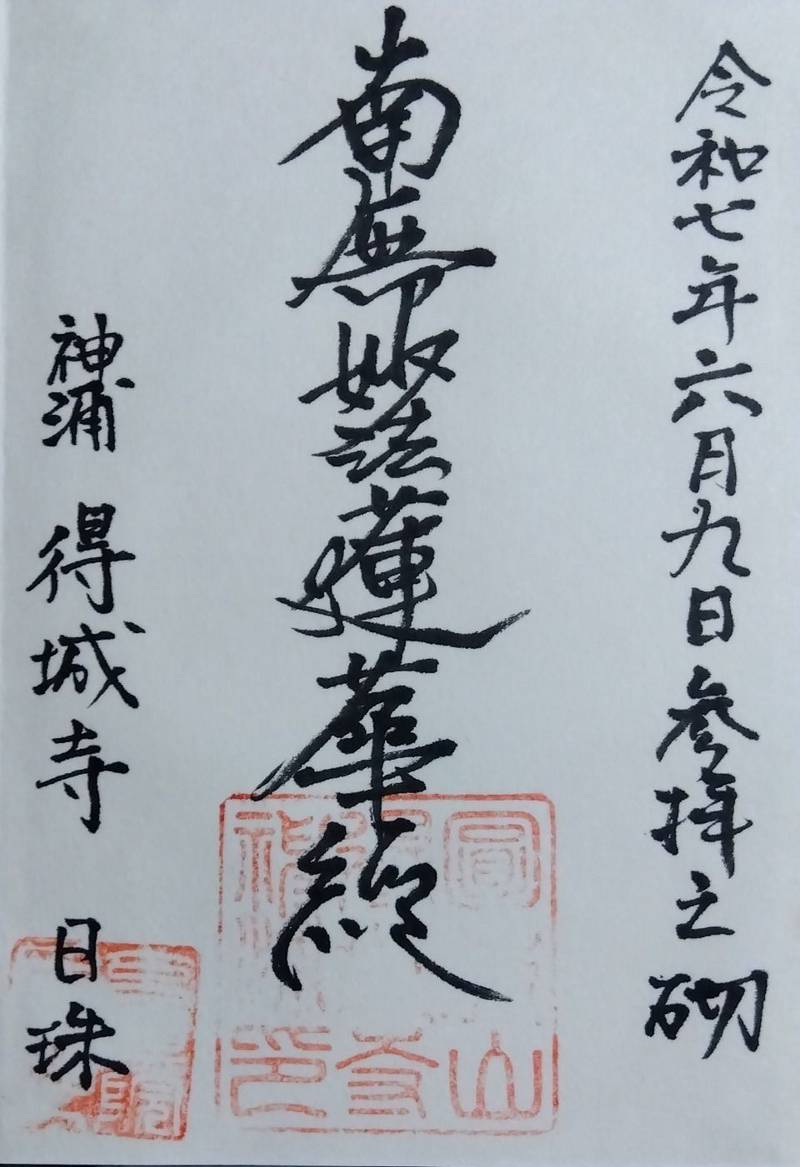 令和七年六月九日参拝之砌
南無妙法蓮華経
神浦 得城寺 日珠